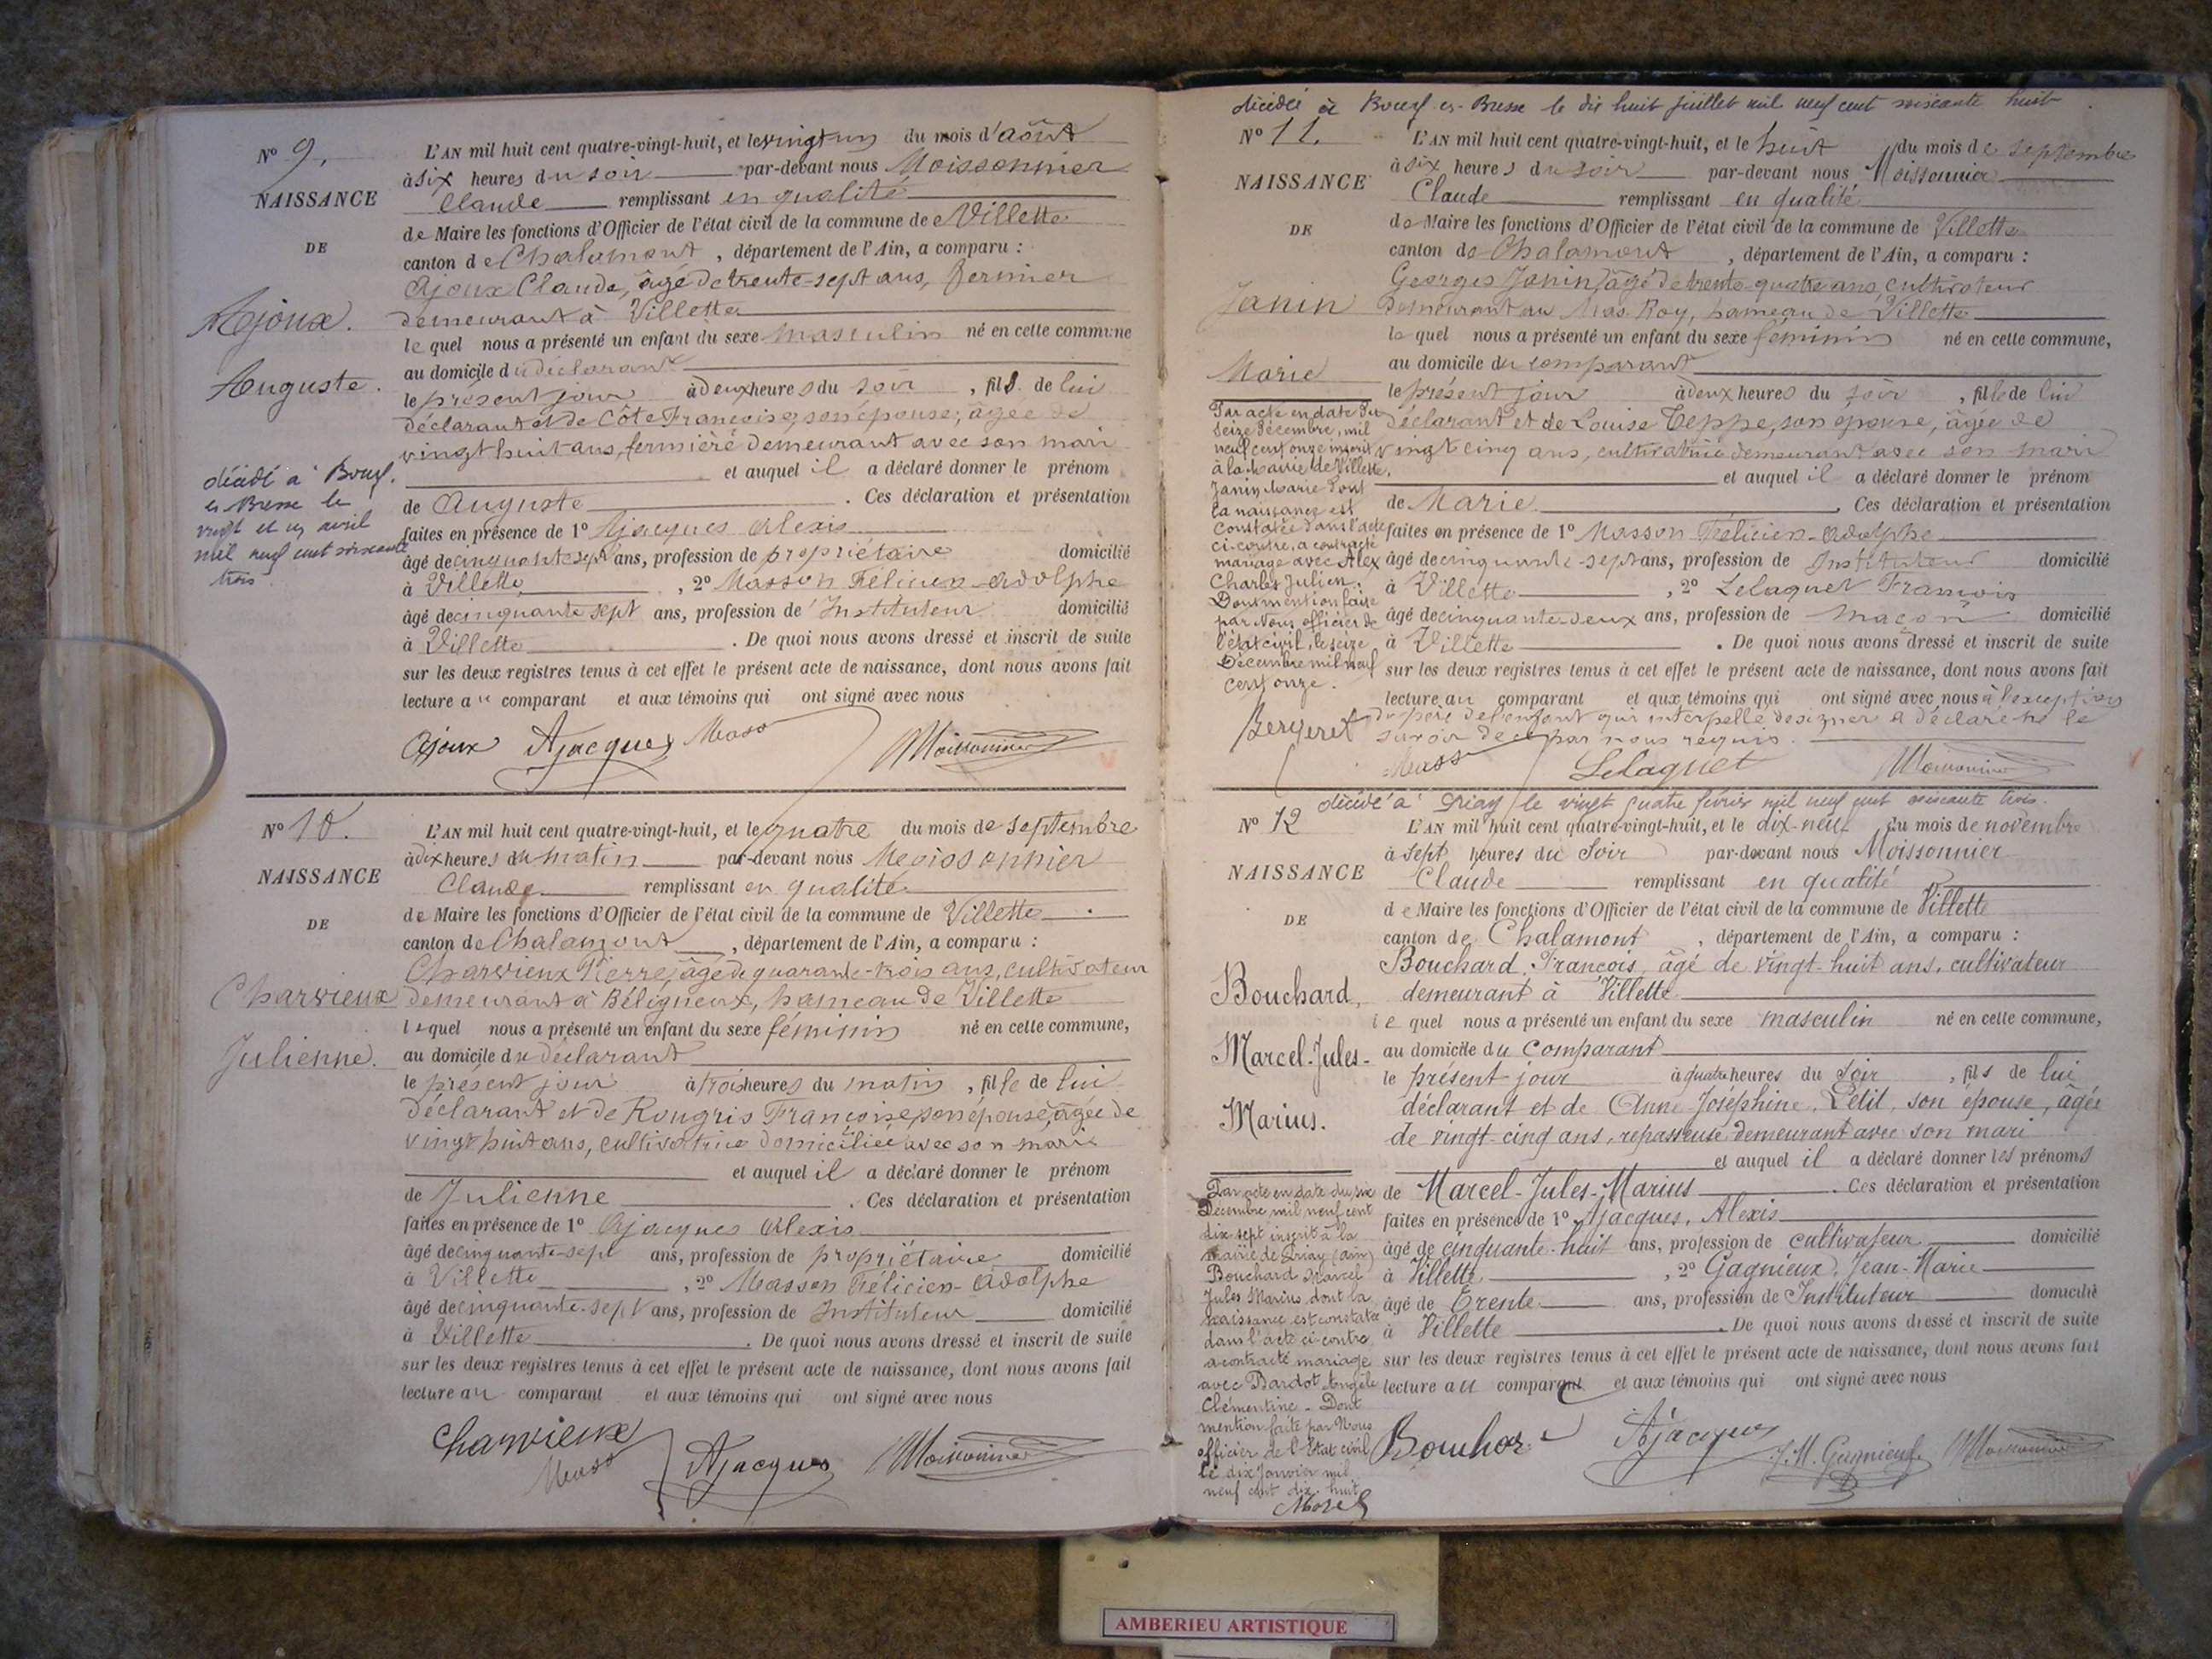 N° 9.
NAISSANCE
DE
Ajoux.
Auguste.
décédé à Bourg
en Bresse le
vingt et un avril
mil neuf cent soixante
trois
L'AN mil huit cent quatre-vingt-huit, et le vingt un du mois d'août
à six heures du soir par-devant nous Moissonnier
Claude remplissant en qualité
de Maire les fonctions d'Officier de l'état civil de la commune de Villette
canton de Chalamont, département de l'Ain, a comparu :
Ajoux Claude, âgé de trente-sept ans, fermier
demeurant à Villette
lequel nous a présenté un enfant du sexe masculin né en cette commune
au domicile du déclarant
le présent jour à deux heures du soir, fils de lui
déclarant et de Côte Françoise, son épouse, âgée de
vingt huit ans, fermière demeurant avec son mari
et auquel il a déclaré donner le prénom
de Auguste. Ces déclaration et présentation
faites en présence de 1° Ajacques Alexis
âgé de cinquante sept ans, profession de propriétaire domicilié
à Villette, 2° Masson Félicien-Adolphe
âgé de cinquante sept ans, profession de Instituteur domicilié
à Villette. De quoi nous avons dressé et inscrit de suite
sur les deux registres tenus à cet effet le présent acte de naissance, dont nous avons fait
lecture au comparant et aux témoins qui ont signé avec nous
Ajoux Ajacques Masso Moissonnier
N° 10.
NAISSANCE
DE
Charvieux
Julienne.
L'AN mil huit cent quatre-vingt-huit, et le quatre du mois de septembre
à dix heures du matin par-devant nous Moissonnier
Claude remplissant en qualité
de Maire les fonctions d'Officier de l'état civil de la commune de Villette
canton de Chalamont, département de l'Ain, a comparu :
Charvieux Pierre, âgé de quarante-trois ans, cultivateur
demeurant à Béligneux, hameau de Villette
lequel nous a présenté un enfant du sexe féminin né en cette commune,
au domicile du déclarant
le présent jour à trois heures du matin, fille de lui
déclarant et de Rougris Françoise, son épouse, âgée de
vingt huit ans, cultivatrice domiciliée avec son mari
et auquel il a déclaré donner le prénom
de Julienne. Ces déclaration et présentation
faites en présence de 1° Ajacques Alexis
âgé de cinquante-sept ans, profession de propriétaire domicilié
à Villette, 2° Masson Félicien-Adolphe
âgé de cinquante-sept ans, profession de Instituteur domicilié
à Villette. De quoi nous avons dressé et inscrit de suite
sur les deux registres tenus à cet effet le présent acte de naissance, dont nous avons fait
lecture au comparant et aux témoins qui ont signé avec nous
Charvieux Masso Ajacques Moissonnier
décédée à Bourg en-Bresse le dix huit juillet mil neuf cent soixante huit.
N° 11.
NAISSANCE
DE
Janin
Marie
Par acte en date du
seize décembre, mil
neuf cent onze inscrit
à la Mairie de Villette,
Janin Marie dont
la naissance est
constatée dans l'acte
ci-contre, a contracté
mariage avec Alex
Charles Julien.
Dont mention faite
par Nous officier de
l'état civil, le seize
Décembre mil neuf
cent onze.
Bergeret
L'AN mil huit cent quatre-vingt-huit, et le huit du mois de septembre
à six heures du soir par-devant nous Moissonnier
Claude remplissant en qualité
de Maire les fonctions d'Officier de l'état civil de la commune de Villette
canton de Chalamont, département de l'Ain, a comparu :
Georges Janin, âgé de trente-quatre ans, cultivateur
demeurant au Mas Roy, hameau de Villette
lequel nous a présenté un enfant du sexe féminin né en cette commune,
au domicile du comparant
le présent jour à deux heures du soir, fille de lui
déclarant et de Louise Teppe, son épouse, âgée de
vingt cinq ans, cultivatrice demeurant avec son mari
et auquel il a déclaré donner le prénom
de Marie. Ces déclaration et présentation
faites en présence de 1° Masson Félicien-Adolphe
âgé de cinquante-sept ans, profession de Instituteur domicilié
à Villette, 2° Lelaquet François
âgé de cinquante-deux ans, profession de maçon domicilié
à Villette. De quoi nous avons dressé et inscrit de suite
sur les deux registres tenus à cet effet le présent acte de naissance, dont nous avons fait
lecture au comparant et aux témoins qui ont signé avec nous à l'exception
du père de l'enfant qui interpellé de signer a déclaré ne le
savoir de ce par nous requis.
Masso Lelaquet Moissonnier
décédé à Priay le vingt quatre février mil neuf cent soixante trois.
N° 12
NAISSANCE
DE
Bouchard,
Marcel-Jules-
Marius.
Par acte en date du six
Décembre mil neuf cent
dix sept inscrit à la
mairie de Priay (Ain)
Bouchard Marcel
Jules Marius dont la
naissance est constatée
dans l'acte ci-contre
a contracté mariage
avec Bardot Angèle
Clémentine - Dont
mention faite par Nous
officier de l'Etat civil
le dix Janvier mil
neuf cent dix-huit
Morel
L'AN mil huit cent quatre-vingt-huit, et le dix-neuf du mois de novembre
à sept heures du soir par-devant nous Moissonnier
Claude remplissant en qualité
de Maire les fonctions d'Officier de l'état civil de la commune de Villette
canton de Chalamont, département de l'Ain, a comparu :
Bouchard, François, âgé de vingt-huit ans, cultivateur
demeurant à Villette
lequel nous a présenté un enfant du sexe masculin né en cette commune,
au domicile du comparant
le présent jour à quatre heures du soir, fils de lui
déclarant et de Anne Joséphine, Petit, son épouse, âgée
de vingt-cinq ans, repasseuse demeurant avec son mari
et auquel il a déclaré donner les prénoms
de Marcel-Jules-Marius. Ces déclaration et présentation
faites en présence de 1° Ajacques, Alexis
âgé de cinquante-huit ans, profession de cultivateur domicilié
à Villette, 2° Gagnieux, Jean-Marie
âgé de Trente ans, profession de Instituteur domicilié
à Villette. De quoi nous avons dressé et inscrit de suite
sur les deux registres tenus à cet effet le présent acte de naissance, dont nous avons fait
lecture au comparant et aux témoins qui ont signé avec nous
Bouchard Ajacques J.M. Gagnieux Moissonnier
AMBERIEU ARTISTIQUE